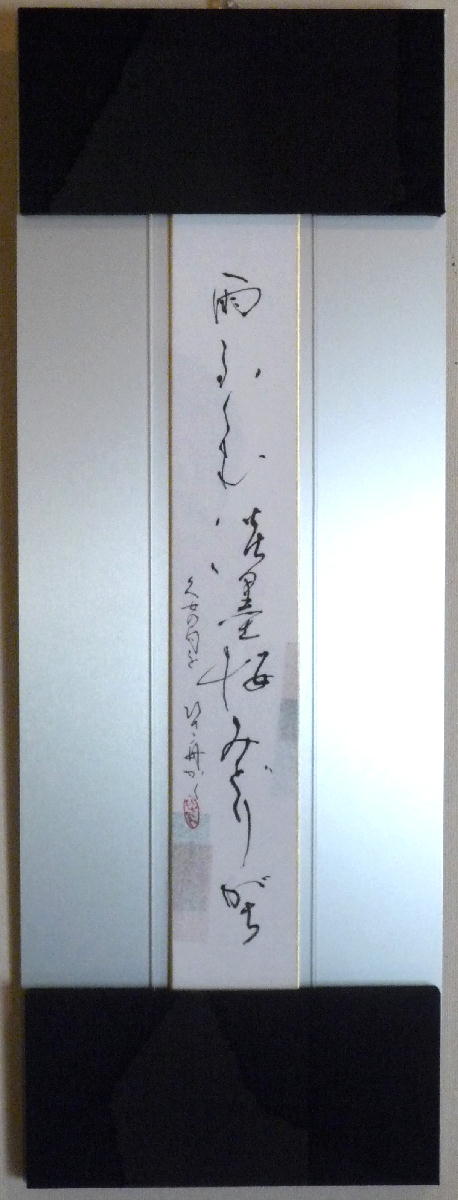 雨ふくむ淡墨桜みどりがち
久女の句を